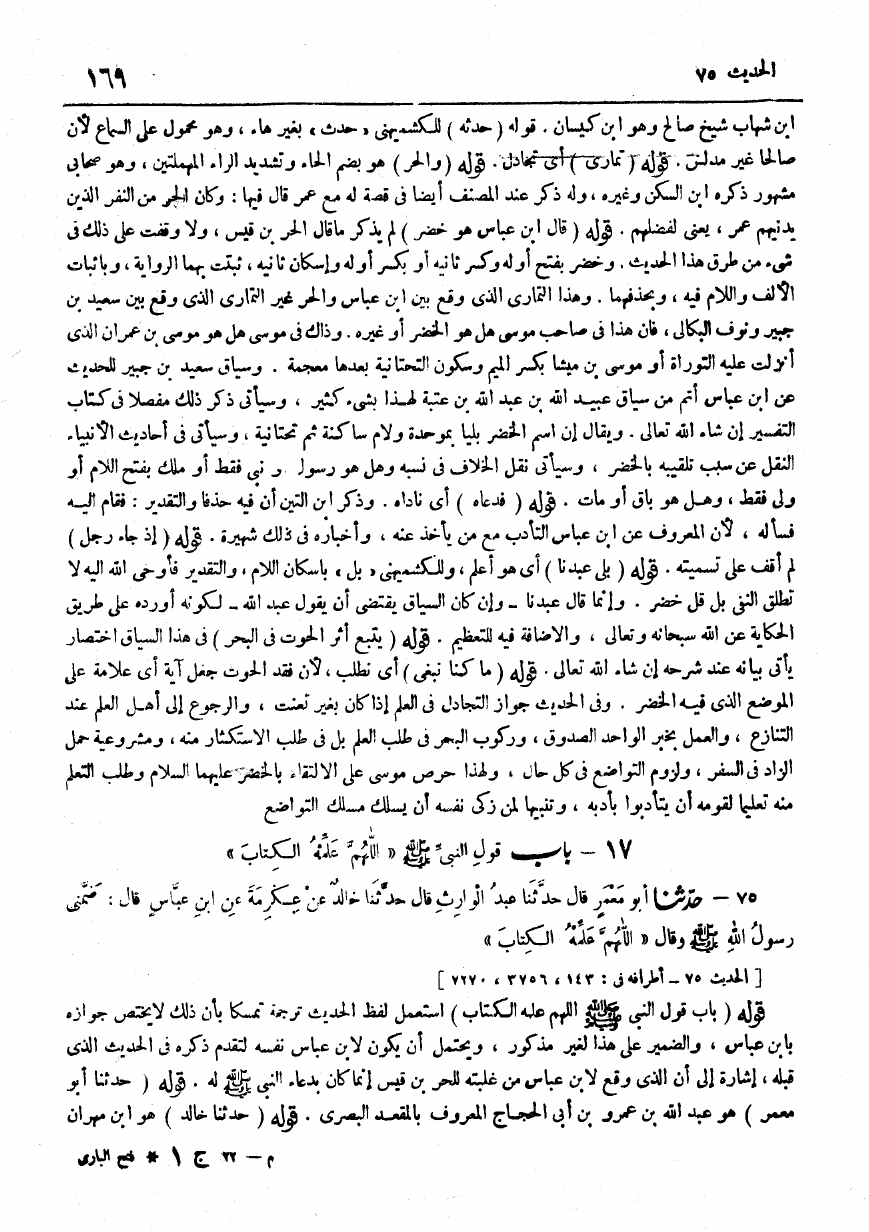 الحديث ٧٥
١٦٩
ابن شهاب شيخ صالح وهو ابن كيسان . قوله ( حدثه ) للكشميهني « حدث » بغير هاء ، وهو محمول على السماع لأن
صالحا غير مدلس . قوله ( تمارى ) أى تجادل . قوله ( والحر ) هو بضم الحاء وتشديد الراء المهملتين ، وهو صحابى
مشهور ذكره ابن السكن وغيره ، وله ذكر عند المصنف أيضا فى قصة له مع عمر قال فيها : وكان الحر من النفر الذين
يدنيهم عمر ، يعنى لفضلهم . قوله ( قال ابن عباس هو خضر ) لم يذكر ماقال الحر بن قيس ، ولا وقفت على ذلك فى
شىء من طرق هذا الحديث . وخضر بفتح أوله وكسر ثانيه أو بكسر أوله وإسكان ثانيه ، ثبتت بهما الرواية ، وباثبات
الألف واللام فيه ، وبحذفهما . وهذا التمارى الذى وقع بين ابن عباس والحر غير التمارى الذى وقع بين سعيد بن
جبير ونوف البكالى ، فان هذا فى صاحب موسى هل هو الخضر أو غيره . وذاك فى موسى هل هو موسى بن عمران الذى
أنزلت عليه التوراة أو موسى بن ميشا بكسر الميم وسكون التحتانية بعدها معجمة . وسياق سعيد بن جبير للحديث
عن ابن عباس أتم من سياق عبيد الله بن عبد الله بن عتبة لهذا بشىء كثير ، وسيأتى ذكر ذلك مفصلا فى كتاب
التفسير إن شاء الله تعالى . ويقال إن اسم الخضر بليا بموحدة ولام ساكنة ثم تحتانية ، وسيأتى فى أحاديث الأنبياء
النقل عن سبب تلقيبه بالخضر ، وسيأتى نقل الخلاف فى نسبه وهل هو رسول و نبى فقط أو ملك بفتح اللام أو
ولى فقط ، وهل هو باق أو مات . قوله ( فدعاه ) أى ناداه . وذكر ابن التين أن فيه حذفا والتقدير : فقام اليه
فسأله ، لأن المعروف عن ابن عباس التأدب مع من يأخذ عنه ، وأخباره فى ذلك شهيرة . قوله ( إذ جاء رجل )
لم أقف على تسميته . قوله ( بلى عبدنا ) أى هو أعلم ، وللكشميهنى « بل » باسكان اللام ، والتقدير فأوحى الله اليه لا
تطلق النفى بل قل خضر . وإنما قال عبدنا - وإن كان السياق يقتضى أن يقول عبد الله - لكونه أورده على طريق
الحكاية عن الله سبحانه وتعالى ، والاضافة فيه للتعظيم . قوله ( يتبع أثر الحوت فى البحر ) فى هذا السياق اختصار
يأتى بيانه عند شرحه إن شاء الله تعالى . قوله ( ما كنا نبغى ) أى نطلب ، لأن فقد الحوت جعل آية أى علامة على
الموضع الذى فيه الخضر . وفى الحديث جواز التجادل فى العلم إذا كان بغير تعنت ، والرجوع إلى أهل العلم عند
التنازع ، والعمل بخبر الواحد الصدوق ، وركوب البحر فى طلب العلم بل فى طلب الاستكثار منه ، ومشروعية حمل
الزاد فى السفر ، ولزوم التواضع فى كل حال ، ولهذا حرص موسى على الالتقاء بالخضر عليهما السلام وطلب التعلم
منه تعليما لقومه أن يتأدبوا بأدبه ، وتنبيها لمن زكى نفسه أن يسلك مسلك التواضع
١٧ - باب قولِ النبىِّ ﷺ « اللَّهُمَّ عَلِّمْهُ الكِتابَ »
٧٥ - حدَّثنا أبو مَعْمَرٍ قال حدَّثَنا عبدُ الْوارِثِ قال حدَّثَنا خالدٌ عنْ عِكرِمةَ عنِ ابنِ عبَّاسٍ قال : ضَمَّنى
رسولُ اللهِ ﷺ وقال « اللَّهُمَّ عَلِّمْهُ الكِتابَ »
[ الحديث ٧٥ - أطرافه فى : ١٤٣ ، ٣٧٥٦ ، ٧٢٧٠ ]
قوله ( باب قول النبى ﷺ اللهم علمه الكتاب ) استعمل لفظ الحديث ترجمة تمسكا بأن ذلك لايختص جوازه
بابن عباس ، والضمير على هذا لغير مذكور ، ويحتمل أن يكون لابن عباس نفسه لتقدم ذكره فى الحديث الذى
قبله ، إشارة إلى أن الذى وقع لابن عباس من غلبته للحر بن قيس إنما كان بدعاء النبى ﷺ له . قوله ( حدثنا أبو
معمر ) هو عبد الله بن عمرو بن أبى الحجاج المعروف بالمقعد البصرى . قوله ( حدثنا خالد ) هو ابن مهران
م - ٢٢ ج ١ * فتح البارى